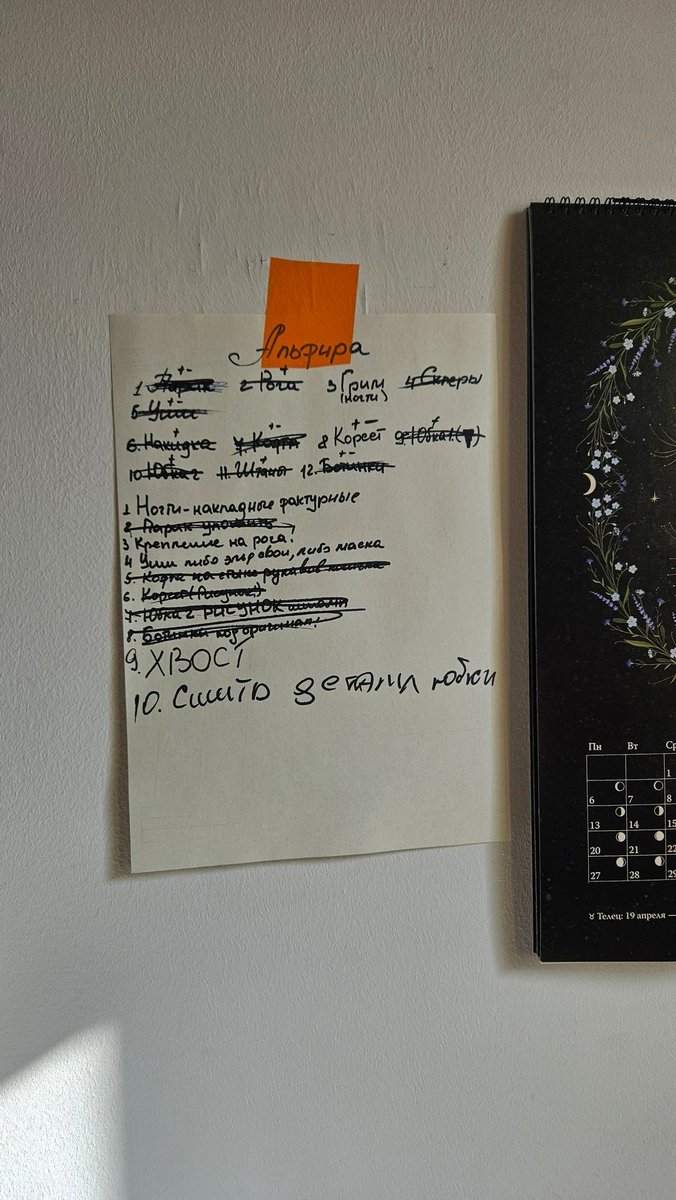 Альфира
1 Парик 2 Рога 3 Грим 4 Склеры
(ногти)
5 Уши
6. Накидка 7. Кофта 8 Корсет 9. Юбка 1.(▼)
10 Юбка 2 11. Штаны 12. Ботинки
1 Ногти-накладные фактурные
2 Парик уложить
3 Крепление на рога.
4 Уши либо эльф свои, либо маска
5. Кофта на стыке рукавов
6. Корсет (Рисунок)
7. Юбка 2 РИСУНОК
8. Ботинки
9. ХВОСТ
10. Сшить детали юбки
Пн Вт Ср
1
6 7 8
13 14 15
20 21 22
27 28 29
♉ Телец: 19 апреля —